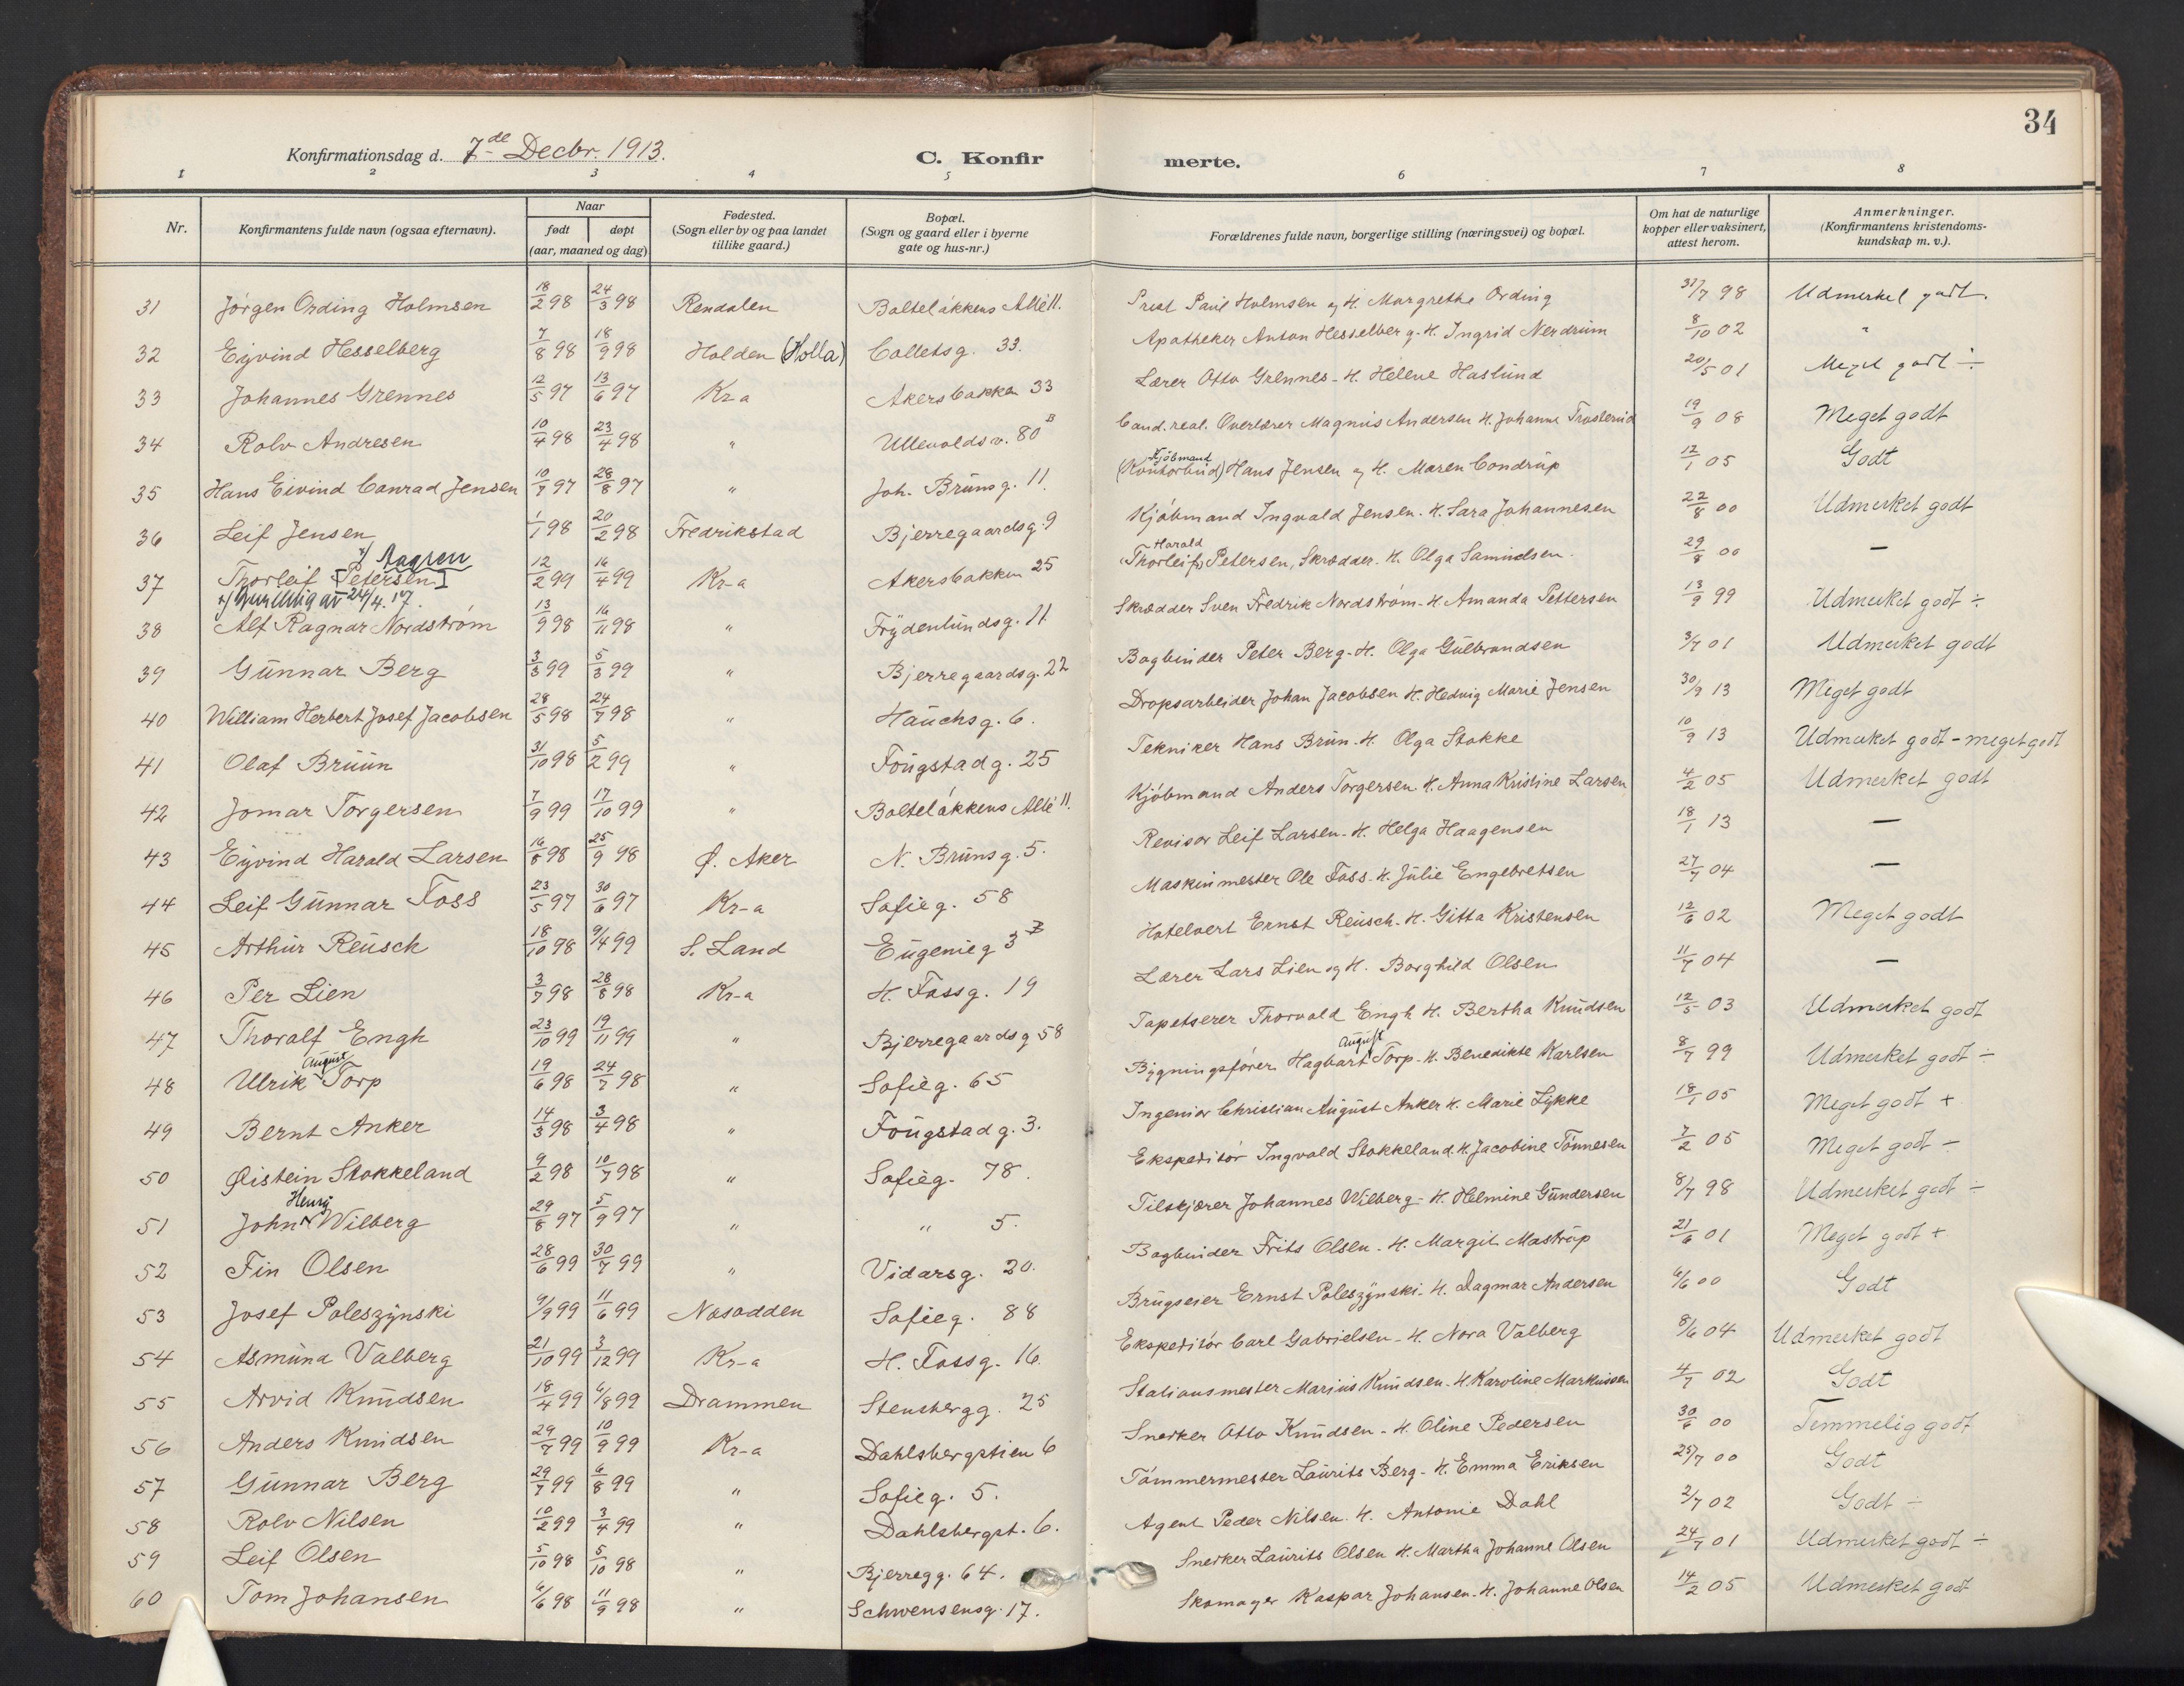 34
Konfirmationsdag d. 7de Decbr. 1913. C. Konfirmerte.
1 2 3 4 5 6 7 8
Nr. Konfirmantens fulde navn (ogsaa efternavn). Naar født døpt (aar, maaned og dag) Fødested. (Sogn eller by og paa landet tillike gaard.) Bopæl. (Sogn og gaard eller i byerne gate og hus-nr.) Forældrenes fulde navn, borgerlige stilling (næringsvei) og bopæl. Om hat de naturlige kopper eller vaksinert, attest herom. Anmerkninger. (Konfirmantens kristendomskundskap m. v.).
31 Jörgen Ording Holmsen 18/2 98 24/3 98 Rendalen Bolteløkkens Allé 11. Prest Paul Holmsen og H. Margrethe Ording 31/7 98 Udmerket godt.
32 Eyvind Hesselberg 7/8 98 18/9 98 Holden (Holla) Colletsg. 33. Apotheker Anton Hesselberg - H. Ingrid Nerdrum 8/10 02 "
33 Johannes Grennes 12/5 97 13/6 97 Kr-a Akersbakken 33 Lærer Otto Grennes - H. Helene Haslund 20/5 01 Meget godt ÷
34 Rolv Andresen 10/4 98 23/4 98 " Ullevoldsv. 80 B Cand. real. Overlærer Magnus Andersen H. Johanne Trosterud 19/9 08 Meget godt
35 Hans Eivind Conrad Jensen 10/7 97 28/8 97 " Joh. Brunsg. 11. (Kontorbud) Kjøbmand Hans Jensen og H. Maren Condrup 12/1 05 Godt
36 Leif Jensen 1/1 98 20/2 98 Fredrikstad Bjerregaardsg. 9 Kjøbmand Ingvald Jensen - H. Sara Johannesen 22/8 00 Udmerket godt
37 Thorleif [Petersen] x) Aagren 12/2 99 16/4 99 Kr-a Akersbakken 25 (Thorleif) Harald Petersen, Skrædder. H. Olga Samuelsen. 29/8 00 —
x) av 24/4. 17.
38 Alf Ragnar Nordström 13/9 98 16/11 98 " Frydenlundsg. 11. Skrædder Sven Fredrik Nordström - H. Amanda Pettersen 13/9 99 Udmerket godt ÷
39 Gunnar Berg 3/3 99 5/3 99 " Bjerregaardsg. 22 Bogbinder Peter Berg - H. Olga Gulbrandsen 3/7 01 Udmerket godt
40 William Herbert Josef Jacobsen 28/5 98 24/7 98 " Hauchsg. 6. Dropsarbeider Johan Jacobsen H. Hedvig Marie Jensen 30/9 13 Meget godt
41 Olaf Bruun 31/10 98 5/2 99 " Fougstadg. 25 Tekniker Hans Brun - H. Olga Stokke 10/9 13 Udmerket godt - meget godt
42 Jomar Torgersen 7/9 99 17/10 99 " Bolteløkkens Allé 11. Kjøbmand Anders Torgersen H. Anna Kristine Larsen 4/2 05 Udmerket godt
43 Eyvind Harald Larsen 16/8 98 25/9 98 Ø. Aker N. Brunsg. 5. Revisor Leif Larsen - H. Helga Haagensen 18/1 13 —
44 Leif Gunnar Foss 23/5 97 30/6 97 Kr-a Sofieg. 58 Maskinmester Ole Foss - H. Julie Engebretsen 27/7 04 —
45 Arthur Reusch 18/10 98 9/4 99 S. Land Eugenieg 3 Hotelvert Ernst Reusch - H. Gitta Kristensen 12/6 02 Meget godt
46 Per Lien 3/7 98 28/8 98 Kr-a H. Fossg. 19 Lærer Lars Lien og H. Borghild Olsen 11/7 04 —
47 Thoralf Engh 23/10 99 19/11 99 " Bjerregaardsg 58 Tapetserer Thorvald Engh H. Bertha Knudsen 12/5 03 Udmerket godt
48 Ulrik August Torp 19/6 98 24/7 98 " Sofieg. 65 Bygningsfører Hagbart August Torp - H. Benedikte Karlsen 8/7 99 Udmerket godt ÷
49 Bernt Anker 14/3 98 3/4 98 " Fougstadg. 3. Ingeniør Christian August Anker H. Marie Lykke 18/1 05 Meget godt +
50 Øistein Stokkeland 9/2 98 10/7 98 " Sofieg. 78. Ekspeditör Ingvald Stokkeland H. Jacobine Tönnesen 7/2 05 Meget godt ÷
51 John Henry Wilberg 29/8 97 5/9 97 " " 5. Tilskjærer Johannes Wilberg - H. Helmine Gundersen 8/7 98 Udmerket godt ÷
52 Fin Olsen 28/6 99 30/7 99 " Vidarsg. 20. Bogbinder Frits Olsen - H. Margit Mastrup 21/6 01 Meget godt +
53 Josef Poleszynski 9/9 99 11/6 99 Nesodden Sofieg. 88 Brugseier Ernst Poleszynski - H. Dagmar Andersen 6/6 00 Godt
54 Asmund Valberg 21/10 99 3/12 99 Kr-a H. Fossg. 16. Ekspeditör Carl Gabrielsen - H. Nora Valberg 8/6 04 Udmerket godt
55 Arvid Knudsen 18/4 99 6/8 99 Drammen Stensbergg. 25 Stationsmester Marius Knudsen - H. Karoline Markussen 4/7 02 Godt
56 Anders Knudsen 29/7 99 10/9 99 Kr-a Dahlsbergstien 6 Snerker Otto Knudsen - H. Oline Pedersen 30/6 00 Temmelig godt
57 Gunnar Berg 29/7 99 6/8 99 " Sofieg. 5. Tömmermester Laurits Berg - H. Emma Eriksen 25/7 00 Godt
58 Rolv Nilsen 10/2 99 3/4 99 " Dahlsbergst. 6. Agent Peder Nilsen. H. Antonie Dahl 2/7 02 Godt ÷
59 Leif Olsen 5/10 98 5/10 98 " Bjerregg. 64. Snerker Laurits Olsen H. Martha Johanne Olsen 24/7 01 Udmerket godt ÷
60 Tom Johansen 6/6 98 11/9 98 " Schwensensg. 17. Skomager Kaspar Johansen - H. Johanne Olsen 14/2 05 Udmerket godt